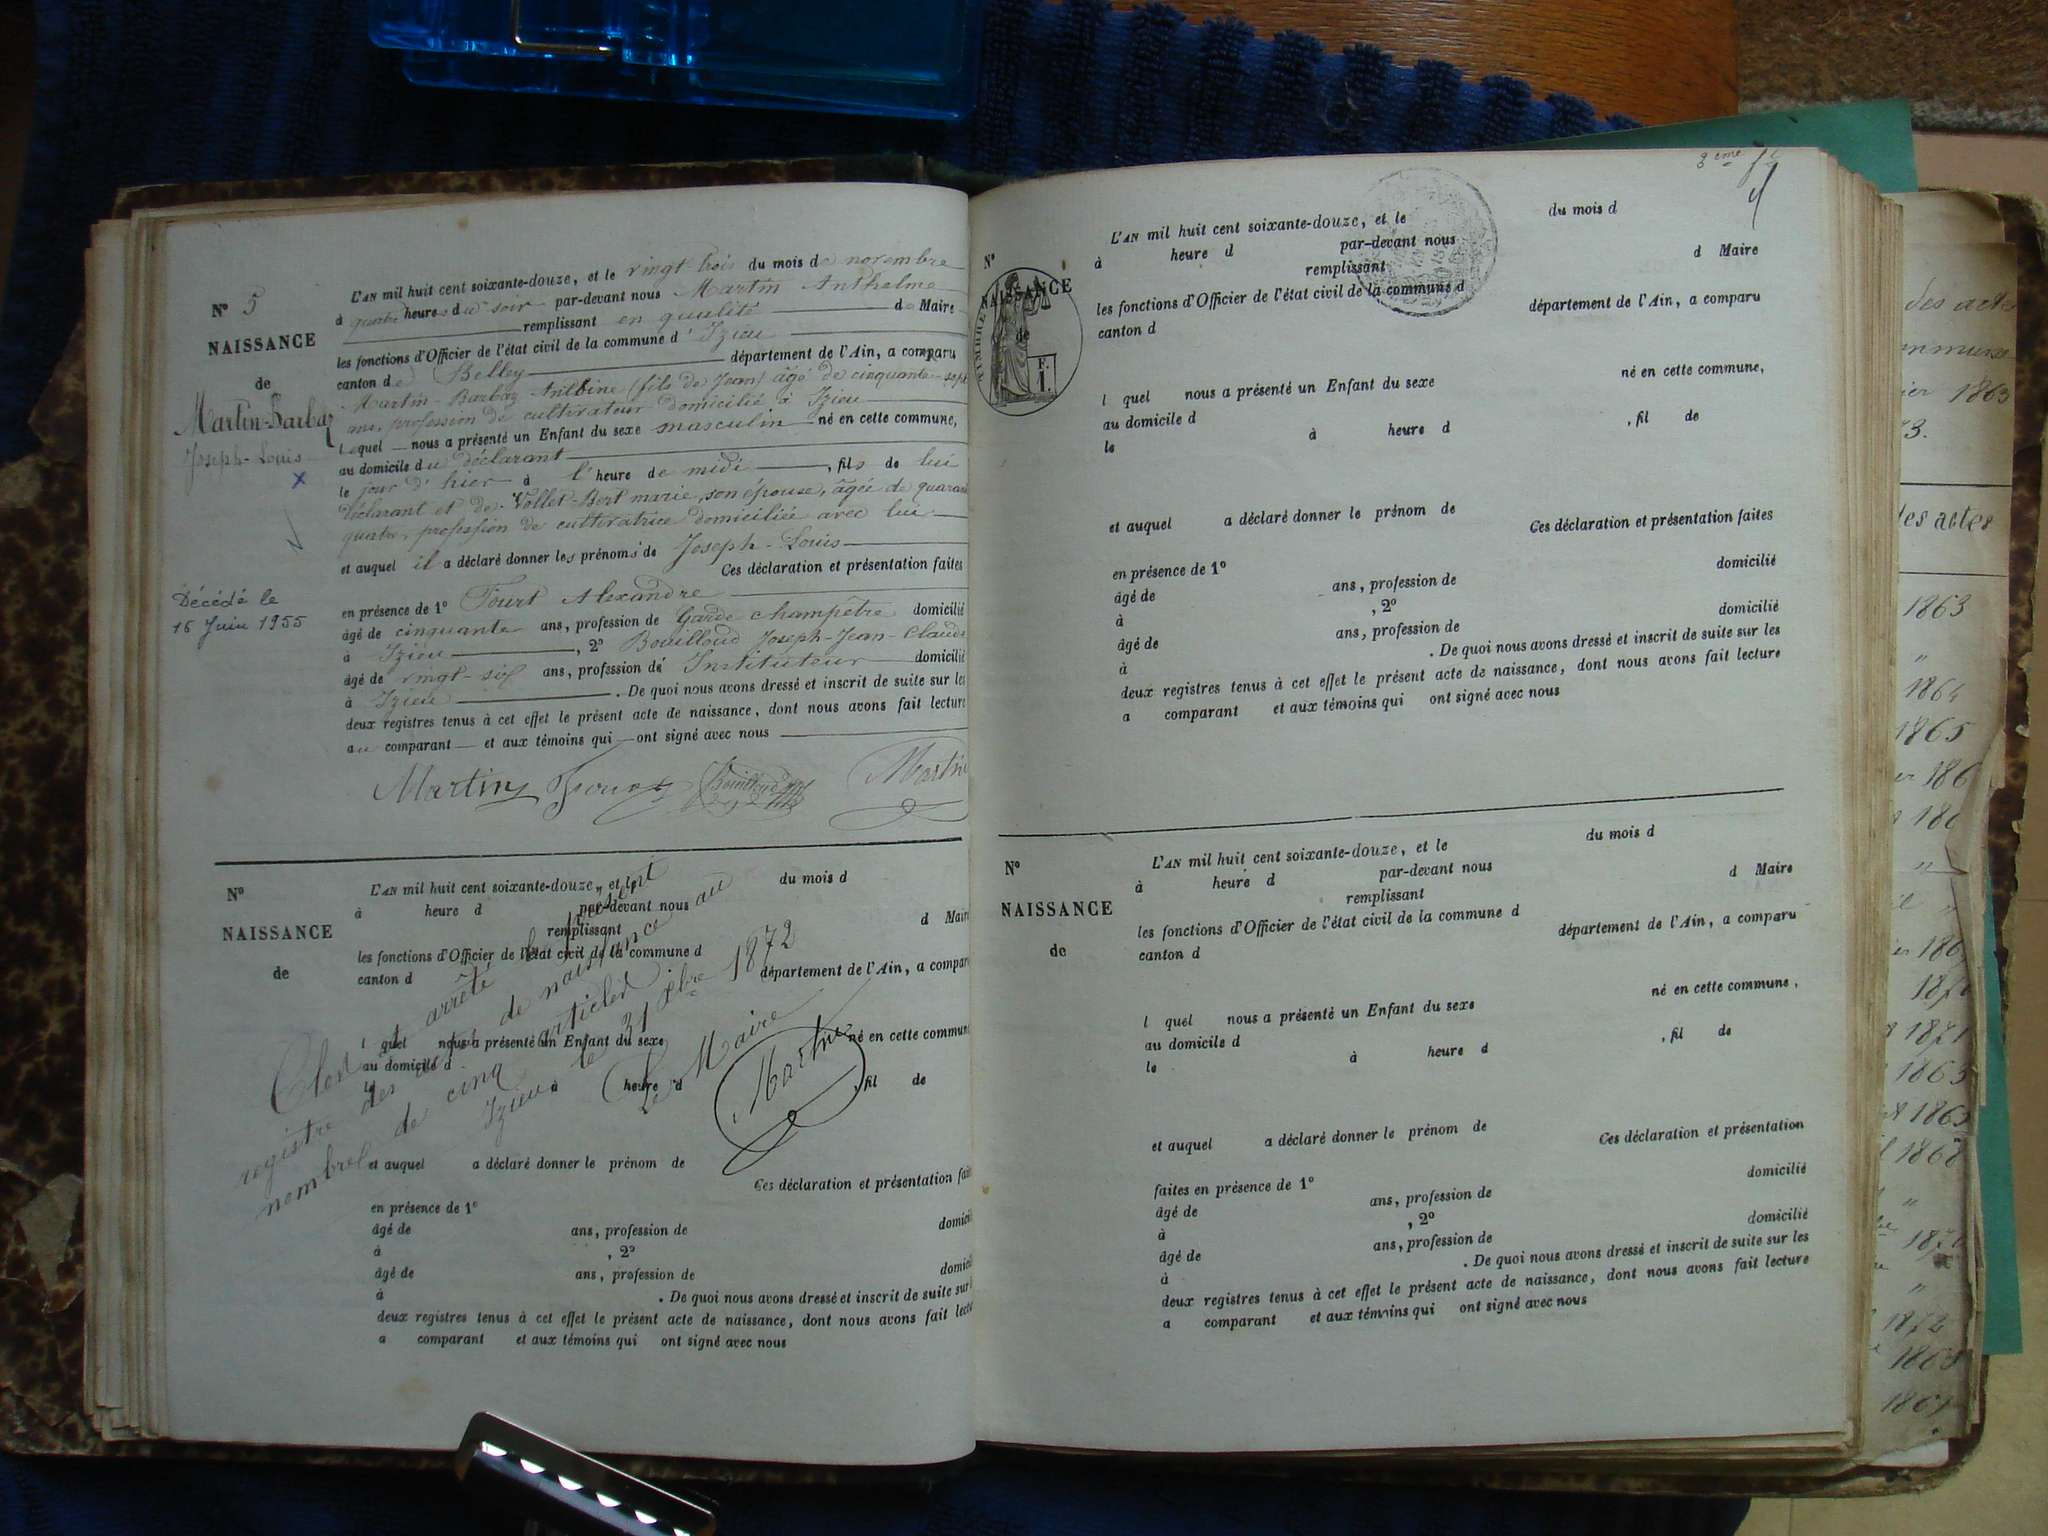 N° 5
NAISSANCE
de
Martin-Barbaz
Joseph-Louis
Décédé le
16 Juin 1955
L'AN mil huit cent soixante-douze, et le vingt trois du mois de novembre
à quatre heures du soir par-devant nous Martin Anthelme
remplissant en qualité de Maire
les fonctions d'Officier de l'état civil de la commune d'Izieu
canton de Belley département de l'Ain, a comparu
Martin-Barbaz (fils de Jean) âgé de cinquante-sept
ans, profession de cultivateur domicilié à Izieu
lequel nous a présenté un Enfant du sexe masculin né en cette commune,
au domicile du déclarant
le jour d'hier à l'heure de midi, fils de lui
déclarant et de Vollet-Bert marie, son épouse, âgée de quarante
quatre, profession de cultivatrice domiciliée avec lui
et auquel il a déclaré donner les prénoms de Joseph-Louis
Ces déclaration et présentation faites
en présence de 1° Alexandre
âgé de cinquante ans, profession de Garde champêtre domicilié
à Izieu, 2° Bouilloud Joseph-Jean-Claude
âgé de vingt-six ans, profession de Instituteur domicilié
à Izieu. De quoi nous avons dressé et inscrit de suite sur les
deux registres tenus à cet effet le présent acte de naissance, dont nous avons fait lecture
au comparant et aux témoins qui ont signé avec nous
Martin Bouilloud Martin
N°
NAISSANCE
de
L'AN mil huit cent soixante-douze, et le du mois d
à heure d par-devant nous
remplissant d Maire
les fonctions d'Officier de l'état civil de la commune d
canton d département de l'Ain, a comparu
l quel nous a présenté un Enfant du sexe né en cette commune
au domicile d
le à heure d , fil de
et auquel a déclaré donner le prénom de
Ces déclaration et présentation faites
en présence de 1°
âgé de ans, profession de domicilié
à , 2°
âgé de ans, profession de domicilié
à . De quoi nous avons dressé et inscrit de suite sur les
deux registres tenus à cet effet le présent acte de naissance, dont nous avons fait lecture
a comparant et aux témoins qui ont signé avec nous
Clos et arrêté le présent
registre des actes de naissance au
nombre de cinq articles
Izieu le 31 Xbre 1872
Le Maire
Martin
8eme
N°
NAISSANCE
de
TIMBRE
L'AN mil huit cent soixante-douze, et le du mois d
à heure d par-devant nous
remplissant d Maire
les fonctions d'Officier de l'état civil de la commune d
canton d département de l'Ain, a comparu
l quel nous a présenté un Enfant du sexe né en cette commune,
au domicile d
le à heure d , fil de
et auquel a déclaré donner le prénom de
Ces déclaration et présentation faites
en présence de 1° domicilié
âgé de ans, profession de
à , 2°
âgé de ans, profession de domicilié
à . De quoi nous avons dressé et inscrit de suite sur les
deux registres tenus à cet effet le présent acte de naissance, dont nous avons fait lecture
a comparant et aux témoins qui ont signé avec nous
N°
NAISSANCE
de
L'AN mil huit cent soixante-douze, et le du mois d
à heure d par-devant nous
remplissant d Maire
les fonctions d'Officier de l'état civil de la commune d
canton d département de l'Ain, a comparu
l quel nous a présenté un Enfant du sexe né en cette commune,
au domicile d
le à heure d , fil de
et auquel a déclaré donner le prénom de
Ces déclaration et présentation
faites en présence de 1° domicilié
âgé de ans, profession de
à , 2°
âgé de ans, profession de domicilié
à . De quoi nous avons dressé et inscrit de suite sur les
deux registres tenus à cet effet le présent acte de naissance, dont nous avons fait lecture
a comparant et aux témoins qui ont signé avec nous
des actes
1863
des actes
1863
1864
1865
1871
1863
1863
1868
1872